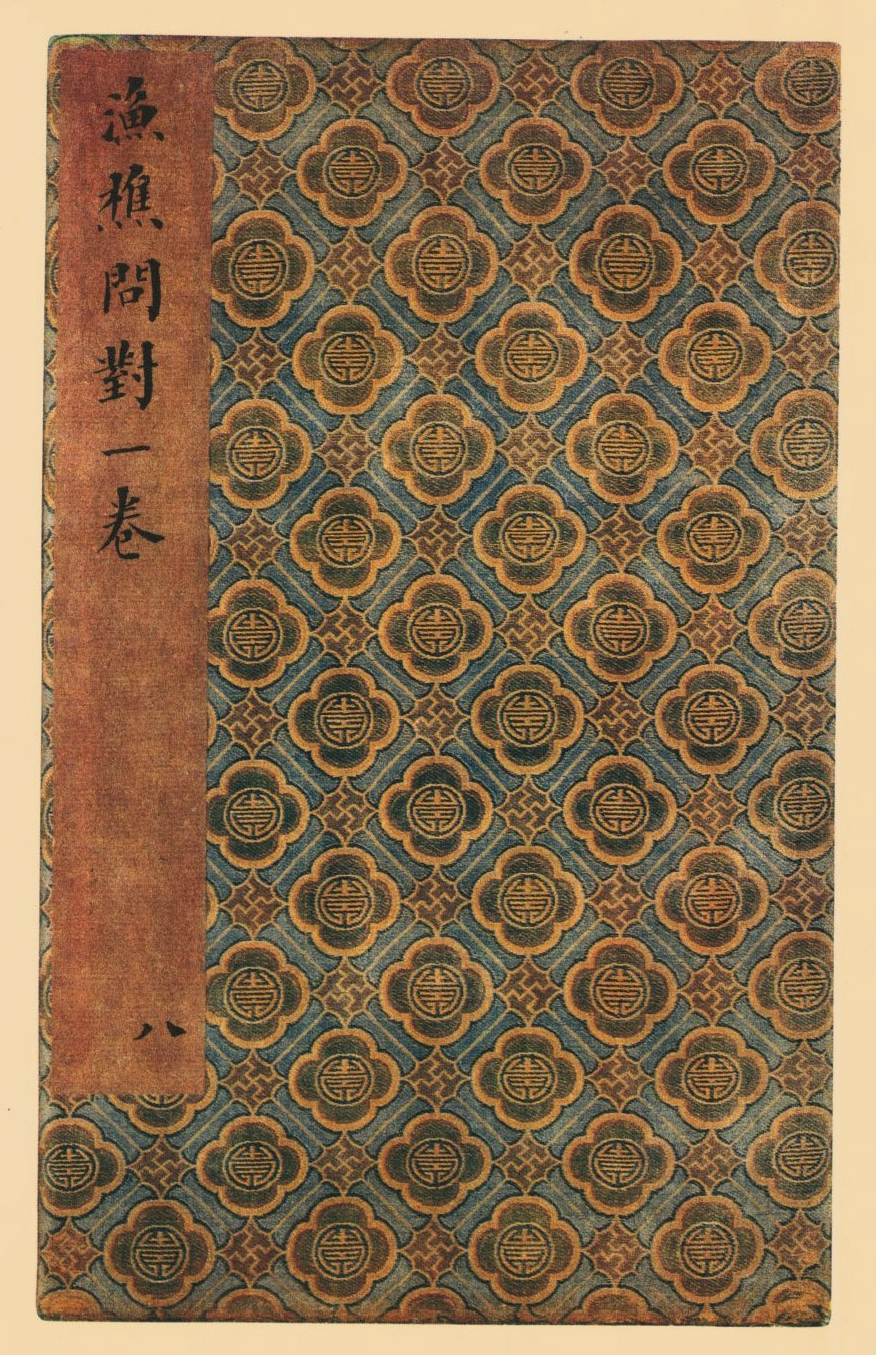 漁樵問對一卷
八